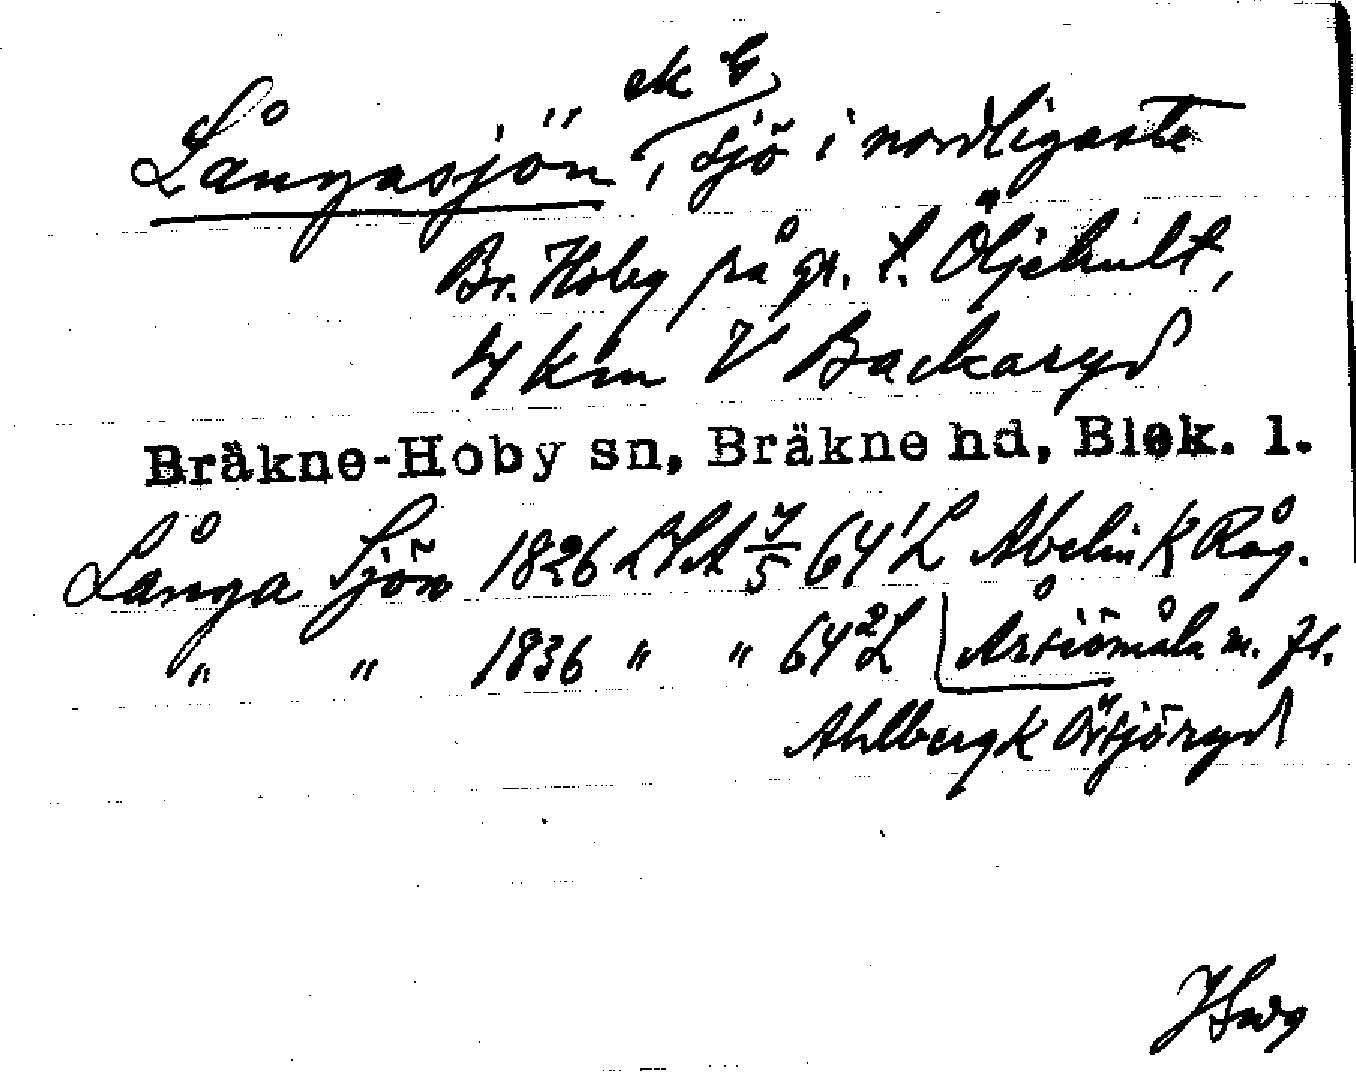 ek G
Långasjön, sjö i nordligaste
Br. Hoby på gr. t. Öljehult,
4 km V Backaryd
Bräkne-Hoby sn, Bräkne hd, Blek. l.
Långa Sjön 1826 LSA 7/5 64¹L Abelin K Råg.
" " 1836 " " 64²L Årsiömåla m. fl.
Ahlberg K Örsjöryd